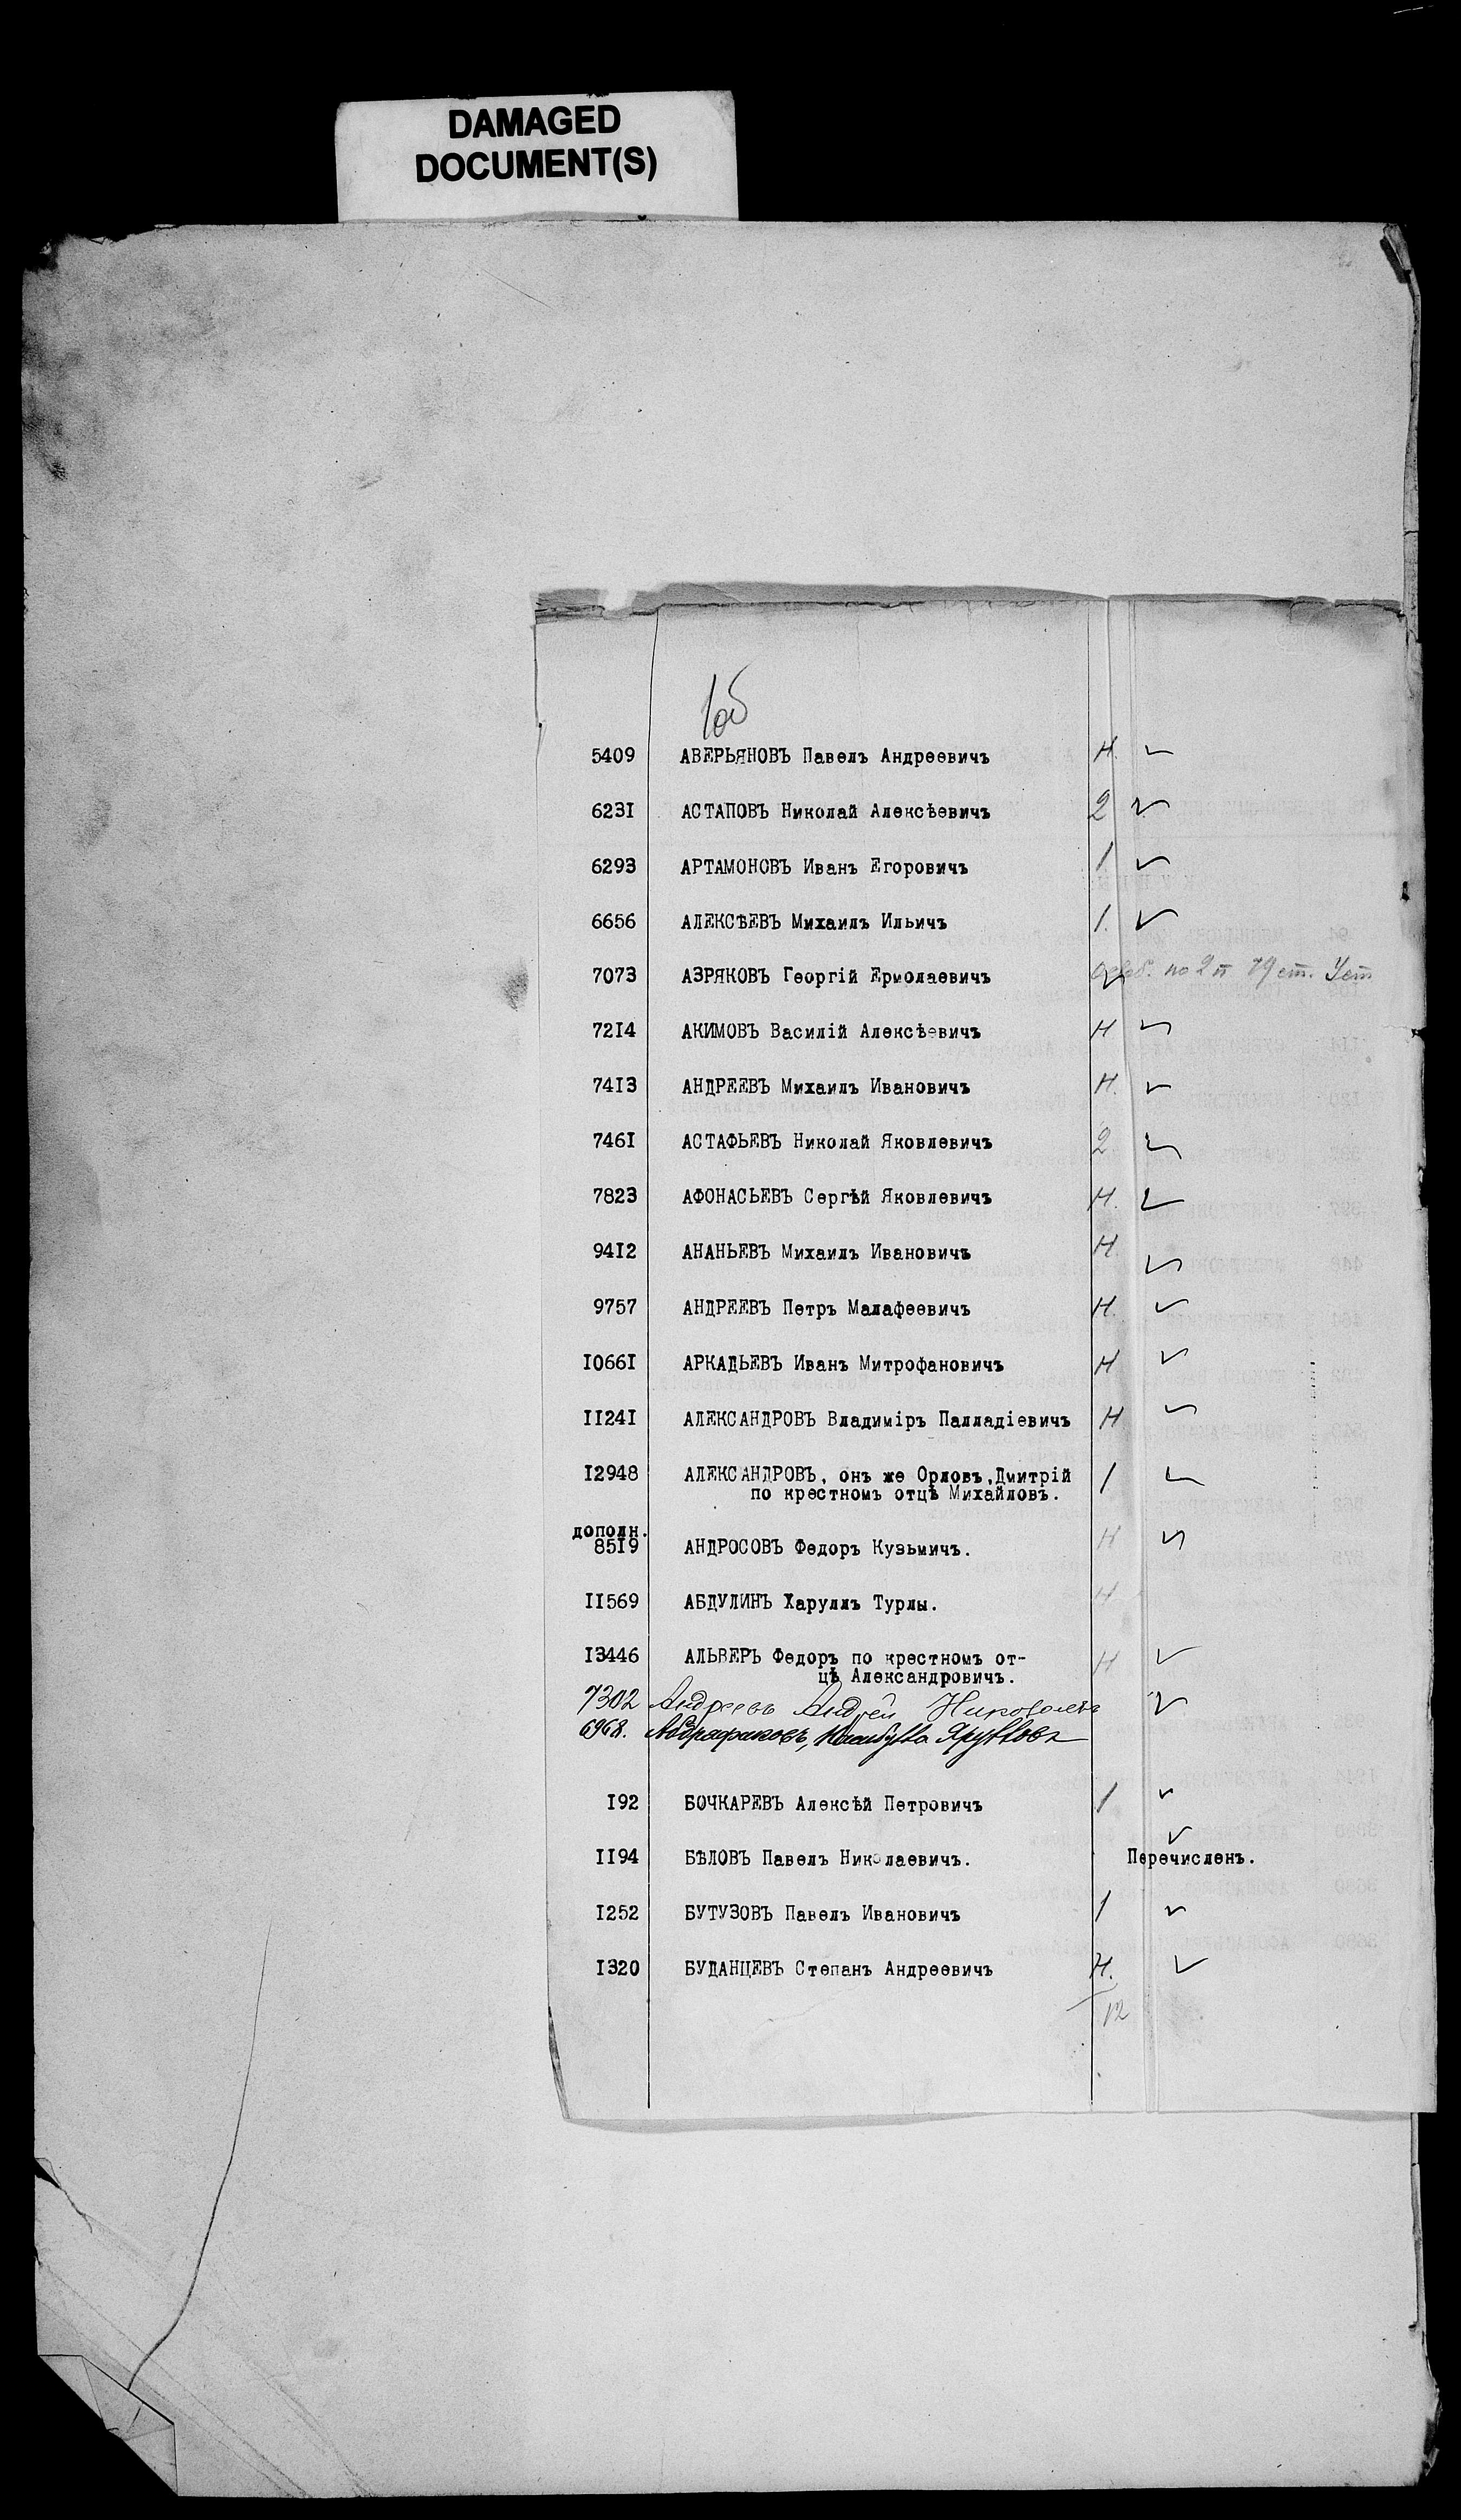 DAMAGED
DOCUMENT(S)
1об
5409 АВЕРЬЯНОВЪ Павелъ Андреевичъ Н.
6231 АСТАПОВЪ Николай Алексѣевичъ 2
6293 АРТАМОНОВЪ Иванъ Егоровичъ 1
6656 АЛЕКСѢЕВЪ Михаилъ Ильичъ 1.
7073 АЗРЯКОВЪ Георгій Ермолаевичъ по 2 п 79 ст. Уст
7214 АКИМОВЪ Василій Алексѣевичъ Н
7413 АНДРЕЕВЪ Михаилъ Ивановичъ Н.
7461 АСТАФЬЕВЪ Николай Яковлевичъ 2
7823 АФОНАСЬЕВЪ Сергѣй Яковлевичъ Н.
9412 АНАНЬЕВЪ Михаилъ Ивановичъ Н
9757 АНДРЕЕВЪ Петръ Малафеевичъ Н.
10661 АРКАДЬЕВЪ Иванъ Митрофановичъ Н
11241 АЛЕКСАНДРОВЪ Владиміръ Палладіевичъ Н
12948 АЛЕКСАНДРОВЪ, онъ же Орловъ, Дмитрій 1
по крестномъ отцѣ Михайловъ.
дополн.
8519 АНДРОСОВЪ Федоръ Кузьмичъ. Н
11569 АБДУЛИНЪ Харуллъ Турлы. Н
13446 АЛЬВЕРЪ Федоръ по крестномъ от- Н
цѣ Александровичъ.
7302 Андреевъ Андрей
6968.
192 БОЧКАРЕВЪ Алексѣй Петровичъ 1
1194 БѢЛОВЪ Павелъ Николаевичъ. Перечисленъ.
1252 БУТУЗОВЪ Павелъ Ивановичъ 1
1320 БУДАНЦЕВЪ Степанъ Андреевичъ Н.
12